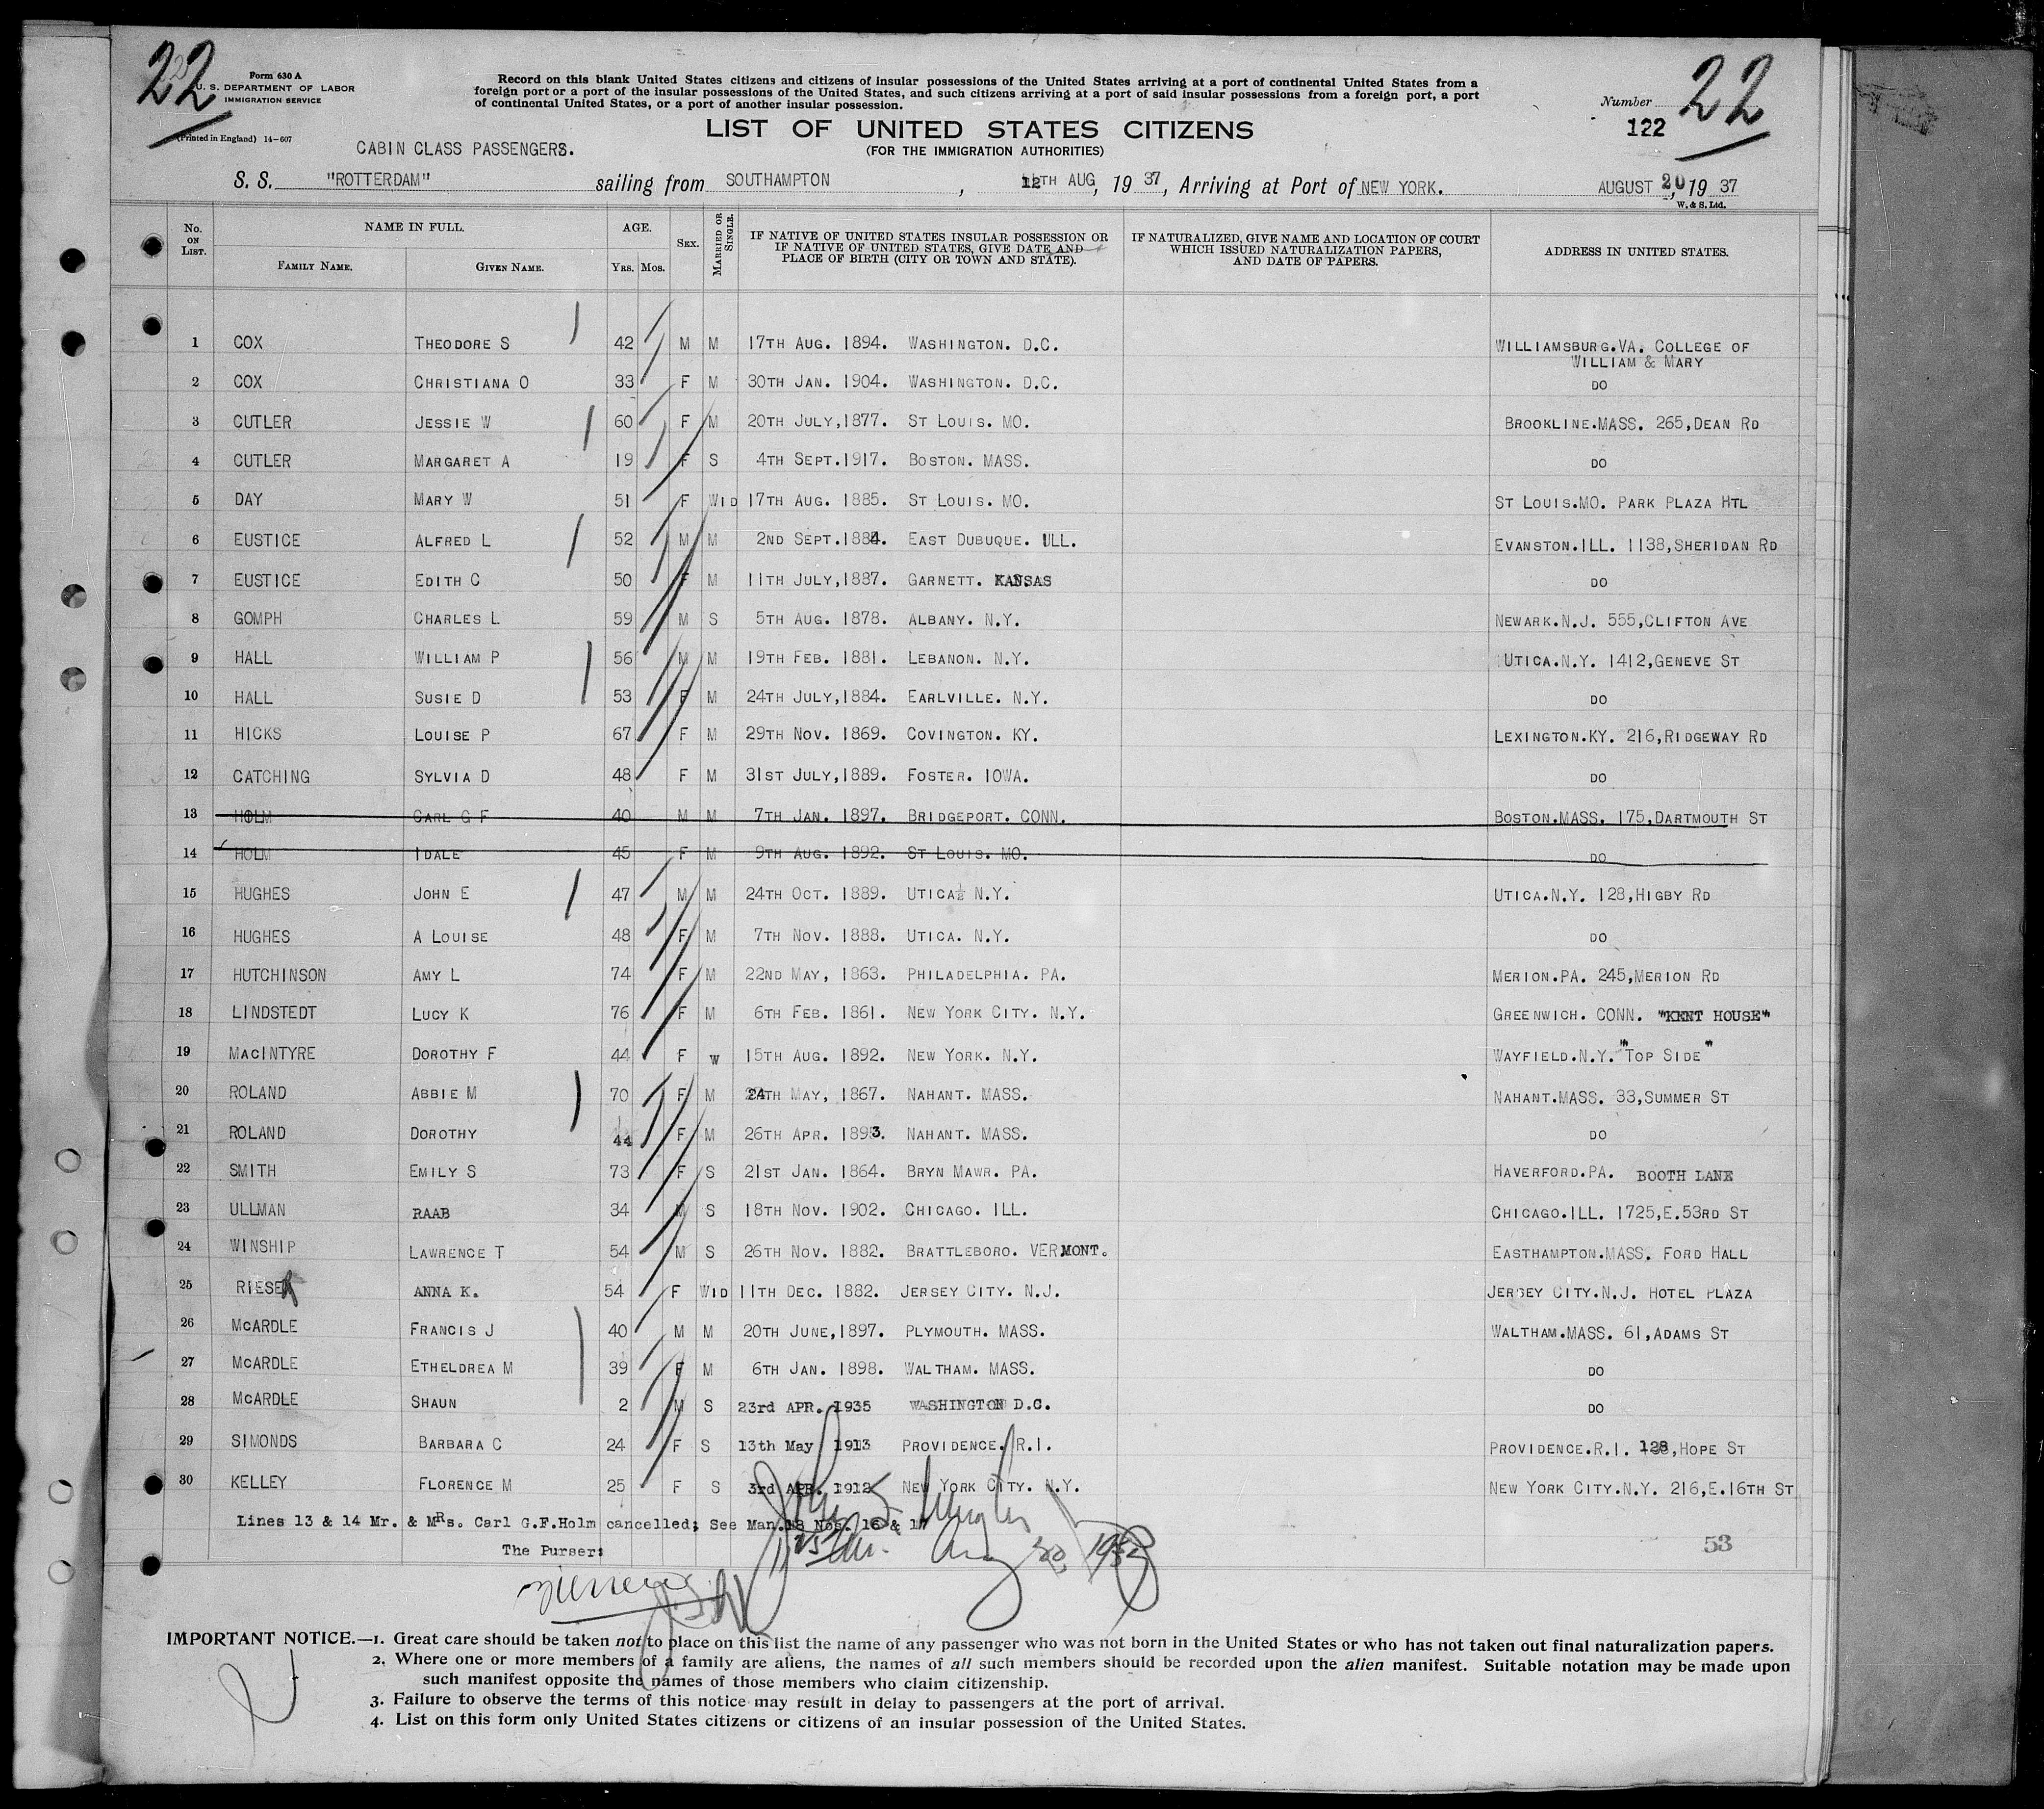 22
22
Form 630 A
U. S. DEPARTMENT OF LABOR
IMMIGRATION SERVICE
(Printed in England) 14-607
Record on this blank United States citizens and citizens of insular possessions of the United States arriving at a port of continental United States from a
foreign port or a port of the insular possessions of the United States, and such citizens arriving at a port of said insular possessions from a foreign port, a port
of continental United States, or a port of another insular possession.
Number
122
LIST OF UNITED STATES CITIZENS
(FOR THE IMMIGRATION AUTHORITIES)
CABIN CLASS PASSENGERS.
S. S. "ROTTERDAM" sailing from SOUTHAMPTON, 12TH AUG, 19 37, Arriving at Port of NEW YORK. AUGUST 20, 19 37
W. & S. Ltd.
No. ON LIST. NAME IN FULL. FAMILY NAME. GIVEN NAME. AGE. YRS. MOS. SEX. MARRIED OR SINGLE. IF NATIVE OF UNITED STATES INSULAR POSSESSION OR IF NATIVE OF UNITED STATES, GIVE DATE AND PLACE OF BIRTH (CITY OR TOWN AND STATE). IF NATURALIZED, GIVE NAME AND LOCATION OF COURT WHICH ISSUED NATURALIZATION PAPERS, AND DATE OF PAPERS. ADDRESS IN UNITED STATES.
1 COX THEODORE S 42 M M 17TH AUG. 1894. WASHINGTON. D.C. WILLIAMSBURG.VA. COLLEGE OF
WILLIAM & MARY
2 COX CHRISTIANA O 33 F M 30TH JAN. 1904. WASHINGTON. D.C. DO
3 CUTLER JESSIE W 60 F M 20TH JULY,1877. ST LOUIS. MO. BROOKLINE.MASS. 265,DEAN RD
4 CUTLER MARGARET A 19 F S 4TH SEPT.1917. BOSTON. MASS. DO
5 DAY MARY W 51 F WID 17TH AUG. 1885. ST LOUIS. MO. ST LOUIS.MO. PARK PLAZA HTL
6 EUSTICE ALFRED L 52 M M 2ND SEPT.1884. EAST DUBUQUE. ILL. EVANSTON.ILL. 1138,SHERIDAN RD
7 EUSTICE EDITH C 50 F M 11TH JULY,1887. GARNETT. KANSAS DO
8 GOMPH CHARLES L 59 M S 5TH AUG. 1878. ALBANY. N.Y. NEWARK.N.J. 555,CLIFTON AVE
9 HALL WILLIAM P 56 M M 19TH FEB. 1881. LEBANON. N.Y. UTICA.N.Y. 1412,GENEVE ST
10 HALL SUSIE D 53 F M 24TH JULY,1884. EARLVILLE. N.Y. DO
11 HICKS LOUISE P 67 F M 29TH NOV. 1869. COVINGTON. KY. LEXINGTON.KY. 216,RIDGEWAY RD
12 CATCHING SYLVIA D 48 F M 31ST JULY,1889. FOSTER. IOWA. DO
13 HOLM CARL G F 40 M M 7TH JAN. 1897. BRIDGEPORT. CONN. BOSTON.MASS. 175,DARTMOUTH ST
14 HOLM IDALE 45 F M 9TH AUG. 1892. ST LOUIS. MO. DO
15 HUGHES JOHN E 47 M M 24TH OCT. 1889. UTICA. N.Y. UTICA.N.Y. 128,HIGBY RD
16 HUGHES A LOUISE 48 F M 7TH NOV. 1888. UTICA. N.Y. DO
17 HUTCHINSON AMY L 74 F M 22ND MAY, 1863. PHILADELPHIA. PA. MERION.PA. 245,MERION RD
18 LINDSTEDT LUCY K 76 F M 6TH FEB. 1861. NEW YORK CITY. N.Y. GREENWICH. CONN. "KENT HOUSE"
19 MACINTYRE DOROTHY F 44 F W 15TH AUG. 1892. NEW YORK. N.Y. WAYFIELD.N.Y. "TOP SIDE"
20 ROLAND ABBIE M 70 F M 24TH MAY, 1867. NAHANT. MASS. NAHANT.MASS. 33,SUMMER ST
21 ROLAND DOROTHY 44 F M 26TH APR. 1893. NAHANT. MASS. DO
22 SMITH EMILY S 73 F S 21ST JAN. 1864. BRYN MAWR. PA. HAVERFORD.PA. BOOTH LANE
23 ULLMAN RAAB 34 M S 18TH NOV. 1902. CHICAGO. ILL. CHICAGO.ILL. 1725,E.53RD ST
24 WINSHIP LAWRENCE T 54 M S 26TH NOV. 1882. BRATTLEBORO. VERMONT. EASTHAMPTON.MASS. FORD HALL
25 RIESER ANNA K. 54 F WID 11TH DEC. 1882. JERSEY CITY. N.J. JERSEY CITY.N.J. HOTEL PLAZA
26 MCARDLE FRANCIS J 40 M M 20TH JUNE,1897. PLYMOUTH. MASS. WALTHAM.MASS. 61,ADAMS ST
27 MCARDLE ETHELDREA M 39 F M 6TH JAN. 1898. WALTHAM. MASS. DO
28 MCARDLE SHAUN 2 M S 23rd APR. 1935 WASHINGTON D.C. DO
29 SIMONDS BARBARA C 24 F S 13th May 1913 PROVIDENCE. R.I. PROVIDENCE.R.I. 128,HOPE ST
30 KELLEY FLORENCE M 25 F S 3rd APR. 1912 NEW YORK CITY. N.Y. NEW YORK CITY.N.Y. 216,E.16TH ST
Lines 13 & 14 Mr. & MRs. Carl G.F.Holm cancelled; See Man.18 Nos. 16 & 17
Aug 20 1937
53
The Purser:
IMPORTANT NOTICE.—1. Great care should be taken not to place on this list the name of any passenger who was not born in the United States or who has not taken out final naturalization papers.
2. Where one or more members of a family are aliens, the names of all such members should be recorded upon the alien manifest. Suitable notation may be made upon
such manifest opposite the names of those members who claim citizenship.
3. Failure to observe the terms of this notice may result in delay to passengers at the port of arrival.
4. List on this form only United States citizens or citizens of an insular possession of the United States.